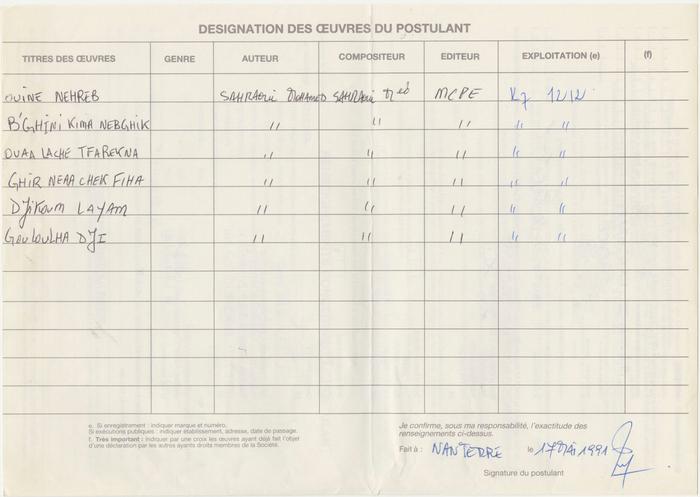 DESIGNATION DES ŒUVRES DU POSTULANT
TITRES DES ŒUVRES GENRE AUTEUR COMPOSITEUR EDITEUR EXPLOITATION (e) (f)
OUINE NEHREB SAHRAOUI MOHAMED SAHRAOUI Med MCPE K7 1212
B'GHINI KIMA NEBGHIK " " " " "
OUAA LACHE TFAREKNA " " " " "
GHIR NEAA CHEK FIHA " " " " "
DJIKOUM LAYAM " " " " "
GOULOULHA DJI " " " " "
e. Si enregistrement : indiquer marque et numéro.
Si exécutions publiques : indiquer établissement, adresse, date de passage.
f. Très important : indiquer par une croix les œuvres ayant déjà fait l'objet
d'une déclaration par les autres ayants droits membres de la Société.
Je confirme, sous ma responsabilité, l'exactitude des
renseignements ci-dessus.
Fait à : NANTERRE le 17 Mai 1991
Signature du postulant